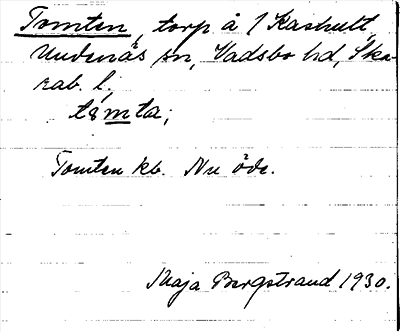 Tomten, torp å 1 Kashult,
Undenäs sn, Vadsbo hd, Ska-
rab. l.,
tömta;
Tomten kb. Nu öde.
Maja Bergstrand 1930.